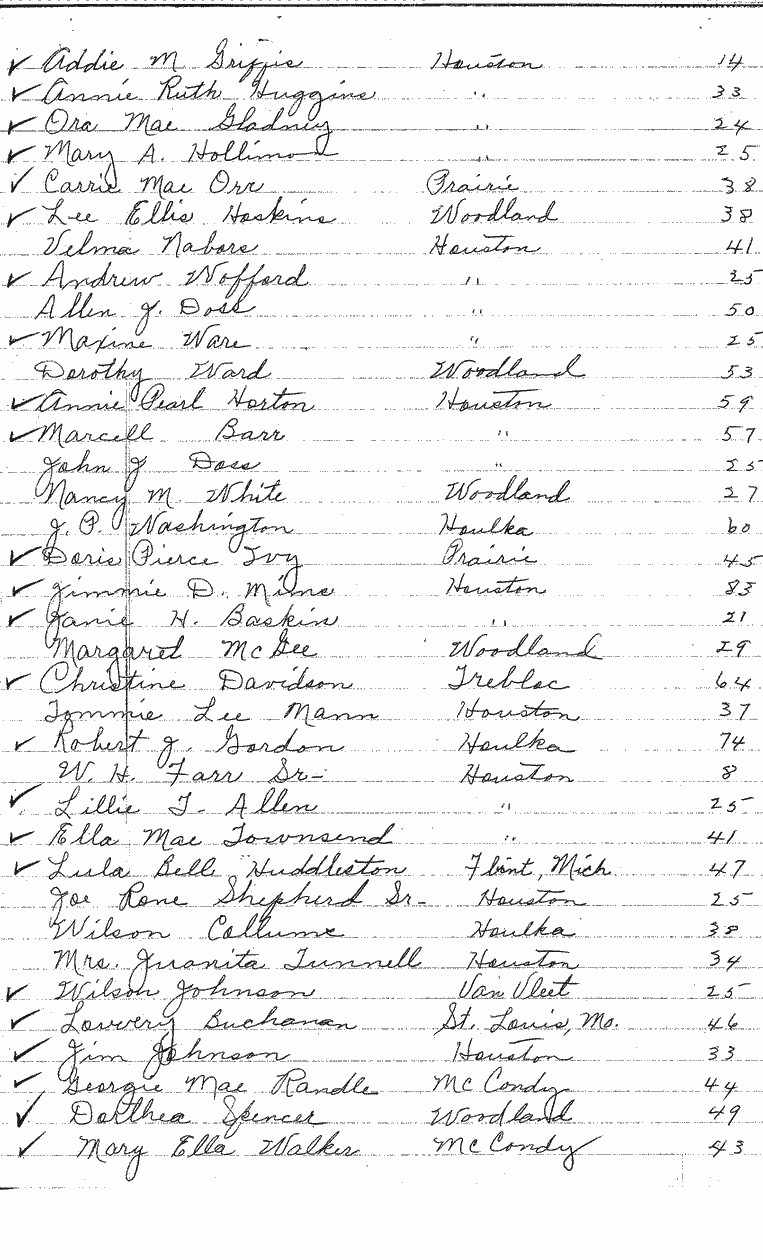 ✓ Addie M Griffis Houston 14
✓ Annie Ruth Huggins " 33
✓ Ora Mae Gladney " 24
✓ Mary A. Hollimon " 25
✓ Carrie Mae Orr Prairie 38
✓ Lee Ellis Hoskins Woodland 38
Velma Nabors Houston 41
✓ Andrew Wofford " 25
Allen J. Doss " 50
✓ Maxine Ware " 25
Dorothy Ward Woodland 53
✓ Annie Pearl Horton Houston 59
✓ Marcell Barr " 57
John J Doss " 25
Nancy M. White Woodland 27
J. P. Washington Houlka 60
✓ Doris Pierce Ivy Prairie 45
✓ Jimmie D. Mims Houston 83
✓ Janie H. Baskin " 21
Margaret McGee Woodland 29
✓ Christine Davidson Trebloc 64
Tommie Lee Mann Houston 37
✓ Robert J. Gordon Houlka 74
W. H. Farr Sr- Houston 8
✓ Lillie T. Allen " 25
✓ Ella Mae Townsend " 41
✓ Lula Bell Huddleston Flint, Mich 47
Joe Rone Shepherd Sr- Houston 25
Wilson Collums Houlka 38
Mrs. Juanita Tunnell Houston 34
✓ Wilson Johnson Van Vleet 25
✓ Lovvery Buchanan St. Louis, Mo. 46
✓ Jim Johnson Houston 33
✓ Georgie Mae Randle McCondy 44
✓ Dorthea Spencer Woodland 49
✓ Mary Ella Walker McCondy 43